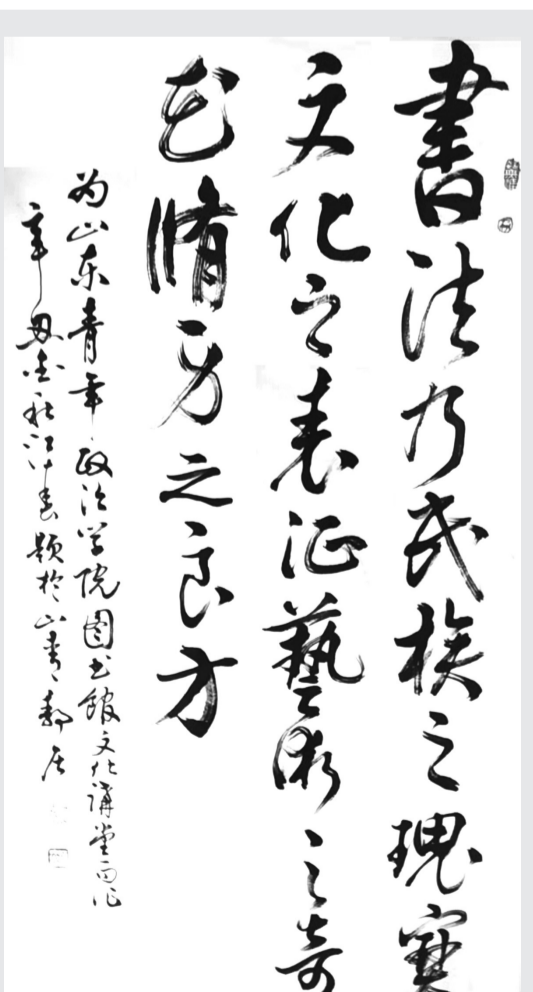 書法乃民族之瑰寶
文化之表征藝術之奇
花脩身之良方
为山东青年政治学院图书馆文化講堂而作
辛丑金秋江春题於山青静居